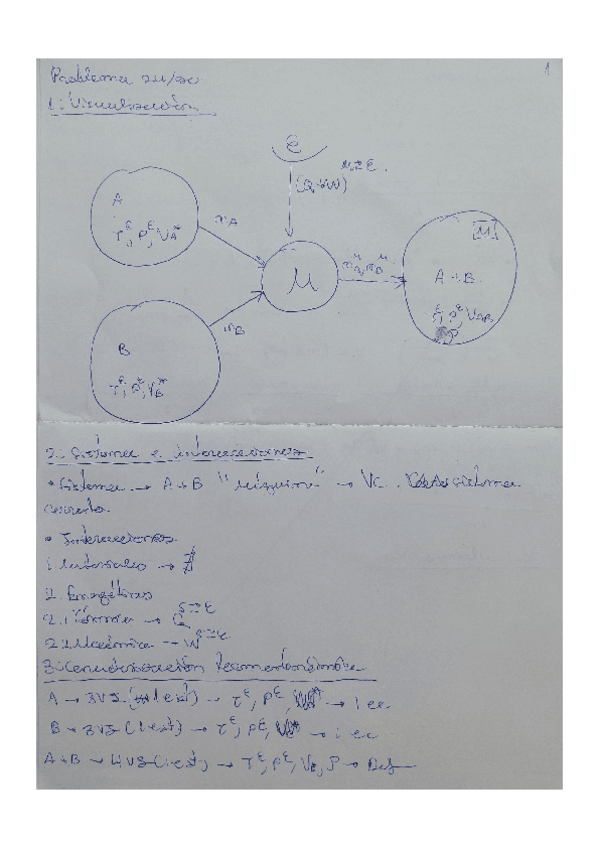 1
Problema
1: Visualización
E
(Q, W)
A
T^E, P^E, V_A^*
n_A
M
[M]
A + B
P^E, V_AB
n_B
B
T^E, P^E, V_B^*
2: Sistema e interacciones
• Sistema → A + B "máquina" → VC. sistema
cerrado.
• Interacciones
1. Materiales → ∄
2. Energéticas
2.1 Térmica → Q^{S⇄E}
2.2 Mecánica → W^{S⇄E}
3: Caracterización termodinámica
A → 3VS (1 ext) → T^E, P^E, → 1 ec
B → 3VS (1 ext) → T^E, P^E, → 1 ec
A + B → 4VS (1 ext) → T^E, P^E,